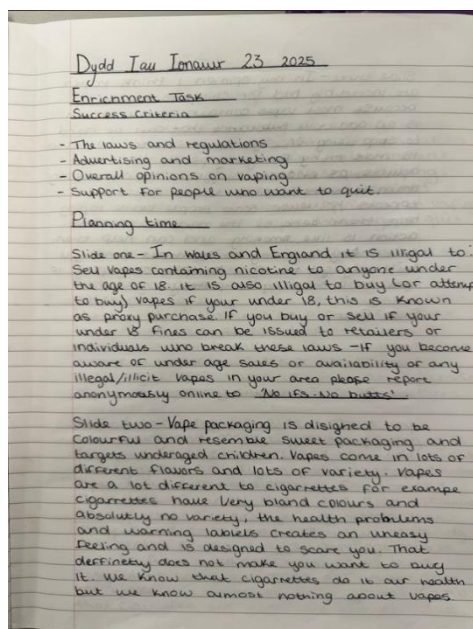 Dydd Iau Ionawr 23 2025
Enrichment Task
Success Criteria
- The laws and regulations
- Advertising and marketing
- Overall opinions on vaping
- Support for people who want to quit
Planning time
Slide one - In Wales and England it is illigal to:
Sell vapes containing nicotine to anyone under
the age of 18. it is also illigal to buy (or attemp
to buy) vapes if your under 18, this is known
as proxy purchase. If you buy or sell if your
under 18 fines can be issued to retailers or
individuals who break these laws - if you become
aware of under age sales or availability of any
illegal/illicit vapes in your area please report
anonymously online to 'No ifs. No butts'
Slide two - Vape packaging is disigned to be
colourful and resemble sweet packaging and
targets underaged children. Vapes come in lots of
different flavors and lots of variety. Vapes
are a lot different to cigarrettes for exampe
cigarrettes have very bland colours and
absolutly no variety, the health problums
and warning labiels creates an uneasy
feeling and is designed to scare you. That
deffinetly does not make you want to buy
it. We know that cigarrettes do it our health
but we know almost nothing about vapes.